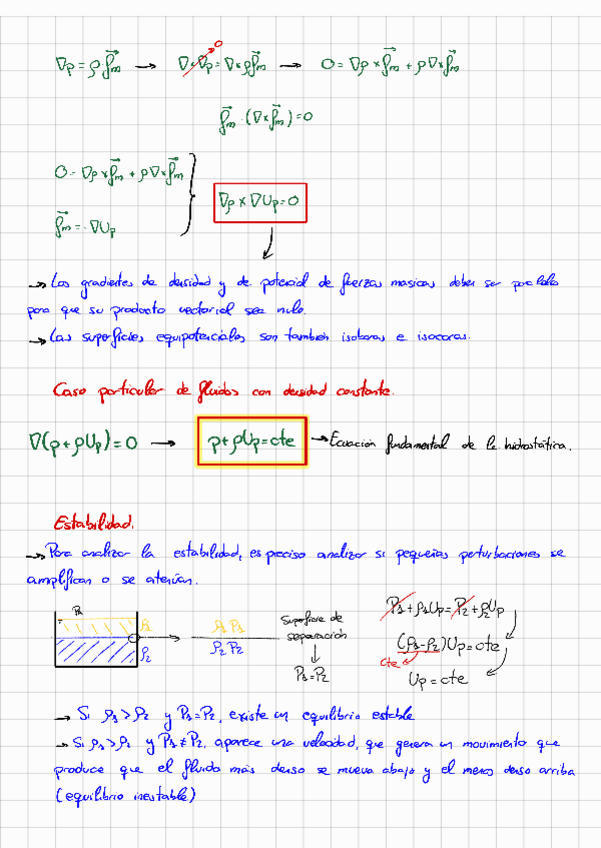 ∇p = ρ f⃗m → ∇×∇p = ∇×ρf⃗m → 0 = ∇ρ × f⃗m + ρ∇×f⃗m
0
f⃗m · (∇×f⃗m) = 0
0 = ∇ρ × f⃗m + ρ∇×f⃗m
∇ρ × ∇Up = 0
f⃗m = -∇Up
→ Los gradientes de densidad y de potencial de fuerzas masicas deben ser paralelos
para que su producto vectorial sea nulo.
→ Las superficies equipotenciales son tambien isobaras e isocoras.
Caso particular de fluidos con densidad constante.
∇(p + ρUp) = 0 → p + ρUp = cte → Ecuación fundamental de la hidrostática.
Estabilidad.
→ Para analizar la estabilidad, es preciso analizar si pequeñas perturbaciones se
amplifican o se atenúan.
Pa
ρ1
ρ2
ρ1 P1
ρ2 P2
Superficie de
separación
↓
P1 = P2
P1 + ρ1Up = P2 + ρ2Up
(ρ1 - ρ2)Up = cte
cte
Up = cte
→ Si ρ1 > ρ2 y P1 = P2, existe un equilibrio estable
→ Si ρ1 > ρ2 y P1 ≠ P2, aparece una velocidad, que genera un movimiento que
produce que el fluido más denso se mueva abajo y el menos denso arriba
(equilibrio inestable)